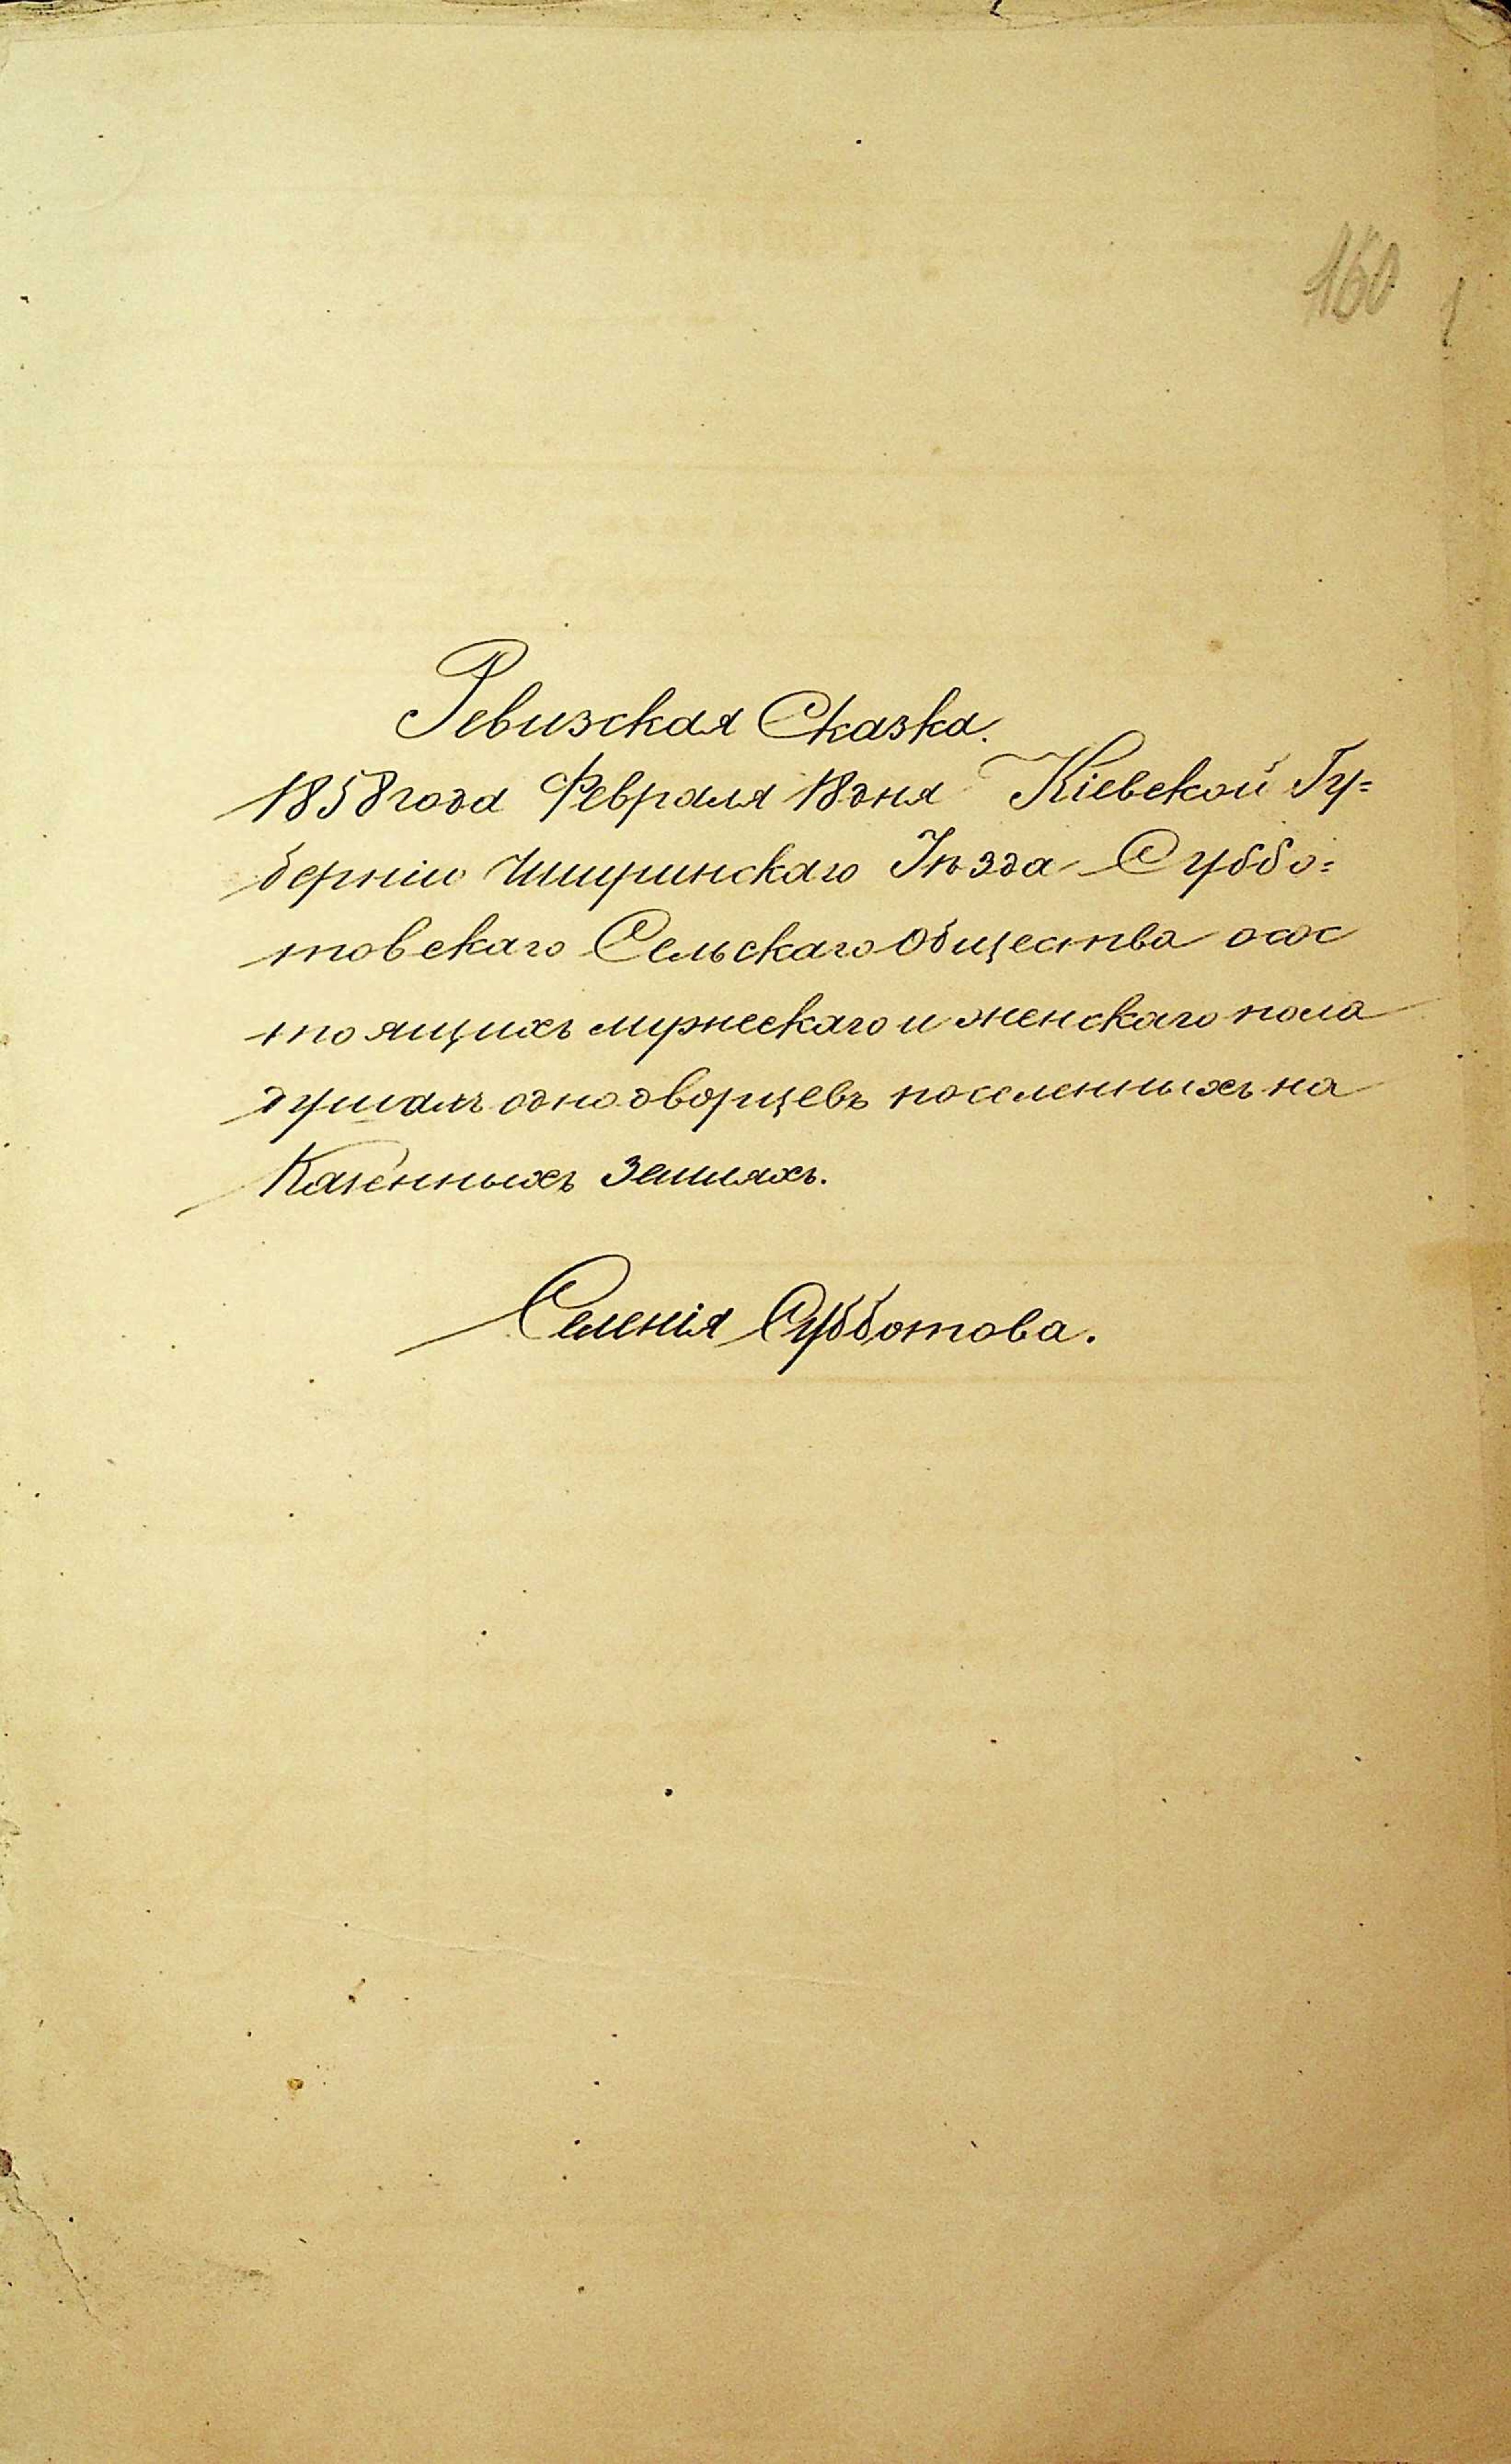 160
Ревизская Сказка.
1858 года Февраля 18 дня Кіевской Гу=
берніи Чигиринскаго Уѣзда Суббо=
товскаго Сельскаго Общества о сос
тоящихъ мужескаго и женскаго пола
душахъ однодворцевъ поселенныхъ на
Казенныхъ Земляхъ.
Селенія Субботова.